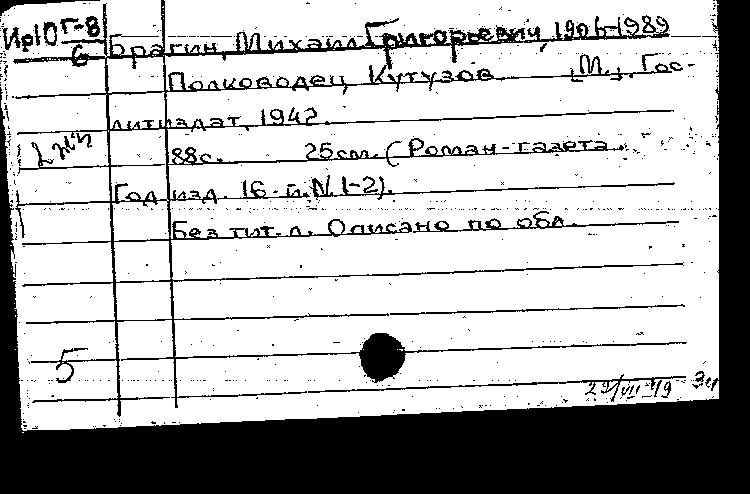 Ир10 Г-8
6
Брагин, Михаил Григорьевич, 1906-1989
Полководец Кутузов [М.], Гос-
литиздат, 1942.
2 экз
88с. 25см. (Роман-газета.
Год изд. 16-й. N. 1-2).
Без тит. л. Описано по обл.
5
29/VII 49